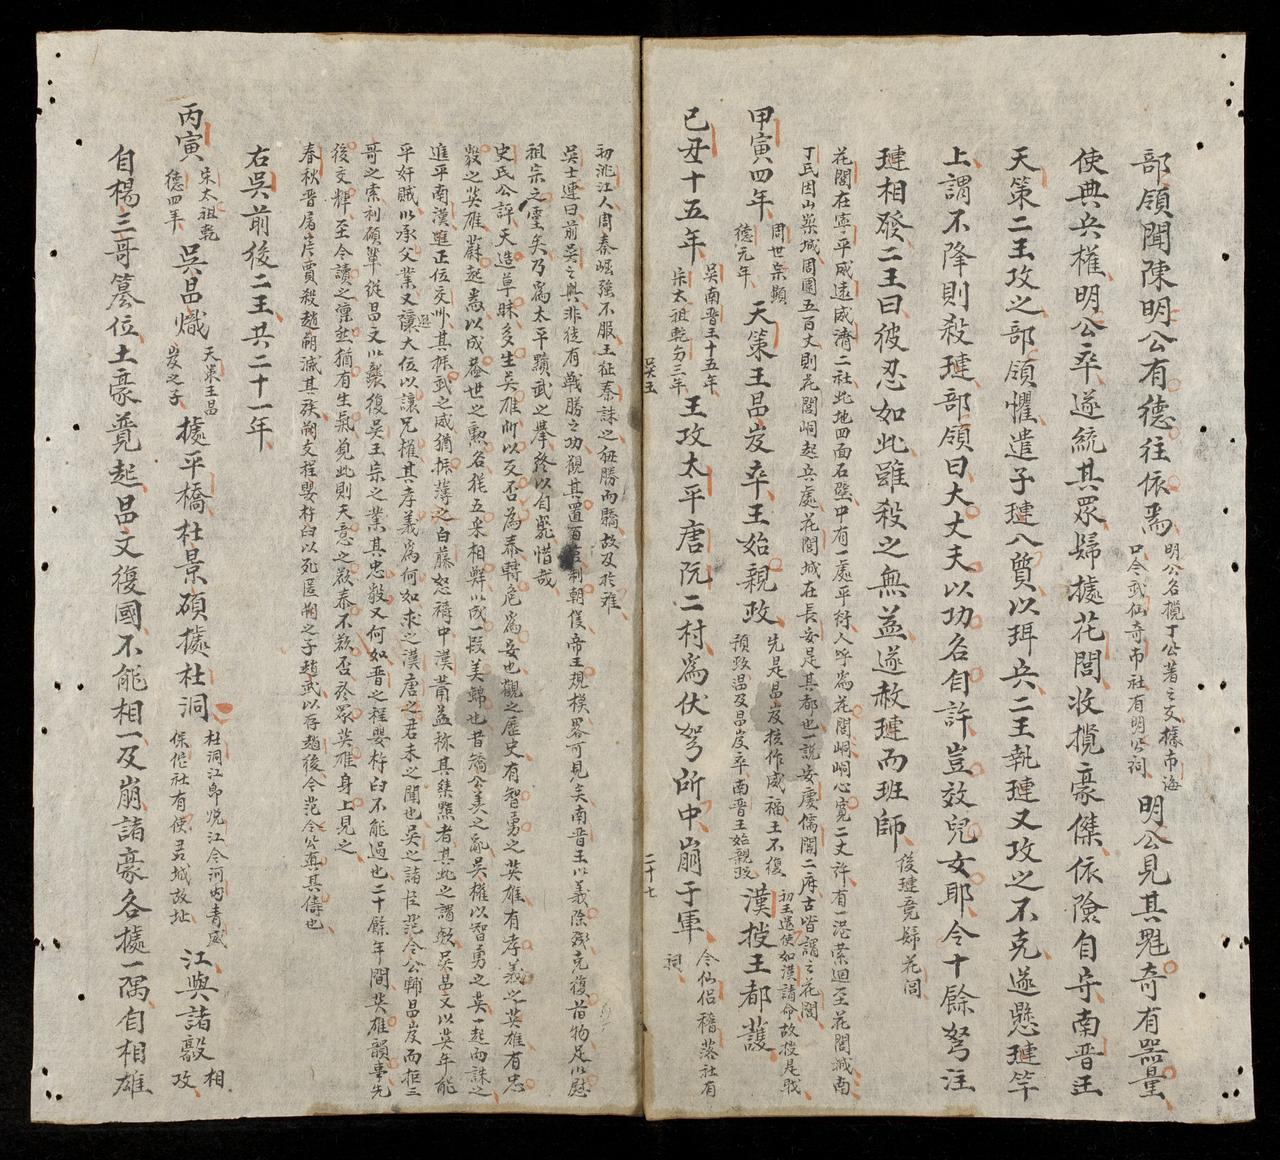 部領聞陳明公有德徃依焉明公名攬丁公著之文據布海口今武仙奇布社有明公祠明公見其魁奇有噐量
使典兵權明公卒遂統其眾歸據花閭收攬豪傑依險自守南晋王
天策二王攻之部領懼遣子璉入質以珥兵二王執璉又攻之不克遂懸璉竿
上謂不降則殺璉部領曰大丈夫以功名自許豈效兒女耶令十餘弩注
璉相發二王曰彼忍如此雖殺之無益遂赦璉而班師後璉竟歸花閭
花閭在寧平咸遠咸濟二社此地四面石壁中有一處平衍人呼為花閭峒峒心寬二丈許有一港縈迴至花閭城南
丁氏因山築城周圍五百丈則花閭峒起兵處花閭城在長安是其都也一説安慶儒關二府古皆謂之花閭
甲寅四年周世宗顯德元年天策王昌岌卒王始親政先是昌岌擅作威福王不復預政温及昌岌卒南晋王始親政漢授王都護初王遣使如漢請命故授是職
已丑十五年吳南晋王十五年宋太祖乾匀三年王攻太平唐阮二村為伏弩所中崩于軍今仙侣稽落社有祠
吳王
二十七
初洮江人周泰崛強不服王征泰誅之狃勝而驕故及於難
吳士連曰前吳之興非徒有戰勝之功觀其置百官制朝儀帝王規模畧可見矣南晋王以義除殘克復旧物足以慰
祖宗之靈矣乃為太平黷武之舉終以自斃惜哉
史氏公評天造草昧多生英雄所以交否為泰轉危為安也觀之歷史有智勇之英雄有孝義之英雄有忠
毅之英雄蔚起焉以成蓋世之勲名猶五采相輝以成一段美錦也昔矯公羡之亂吳權以智勇之英一起而誅之
進平南漢遂正位交州其振武之威猶振薄之白藤怒濤中漢莆益称其桀黠者其此之謂歟吳昌文以英年能
平奸賊以承父業又讓大位以讓兄權其孝義為何如求之漢唐之君未之聞也吳之諸臣范令公輔昌岌而拒三
哥之索利碩輩從昌文以襲復吳王宗之業其忠毅又何如晋之程嬰杵臼不能過也二十餘年間英雄韻事先
後交輝至今讀之凛然猶有生氣見此則天意之欲泰不欲否於眾英雄身上見之
春秋晋屠岸賈殺趙朔滅其族朔友程嬰杵臼以死匿朔之子趙武以存趙後今范令公真其儔也
右吳前後二王共二十一年
丙寅宋太祖乾德四年吳昌熾天策王昌岌之子據平橋杜景碩據杜洞杜洞江帛悦江今河内青威保佗社有使君城故址江與諸毅相攻
自楊三哥篡位土豪競起昌文復國不能相一及崩諸豪各據一隅自相雄